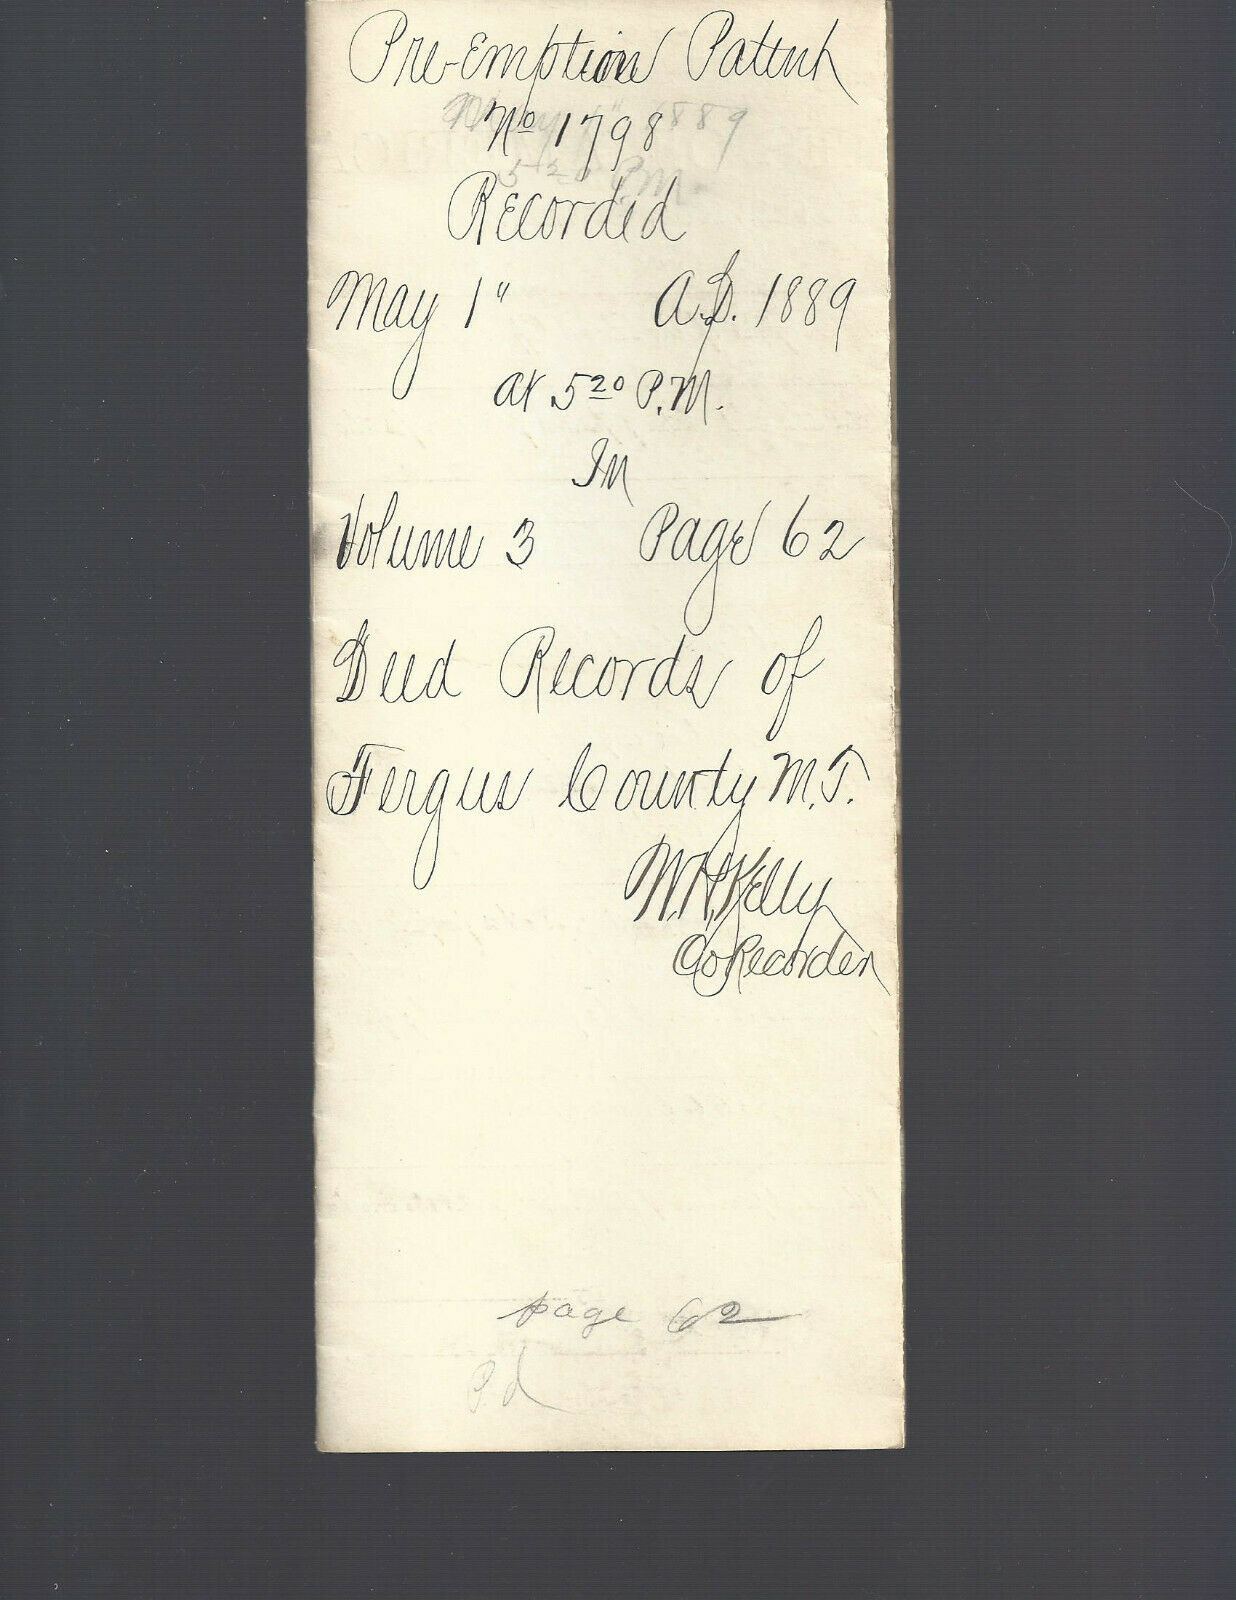 Pre-Emption Patent
May 1" 1889
No 1798
5 20 P.M.
Recorded
May 1" A.D. 1889
at 5 20 P.M.
In
Volume 3 Page 62
Deed Records of
Fergus County M.T.
W.H. Kelly
Co Recorder
page 62
Pd